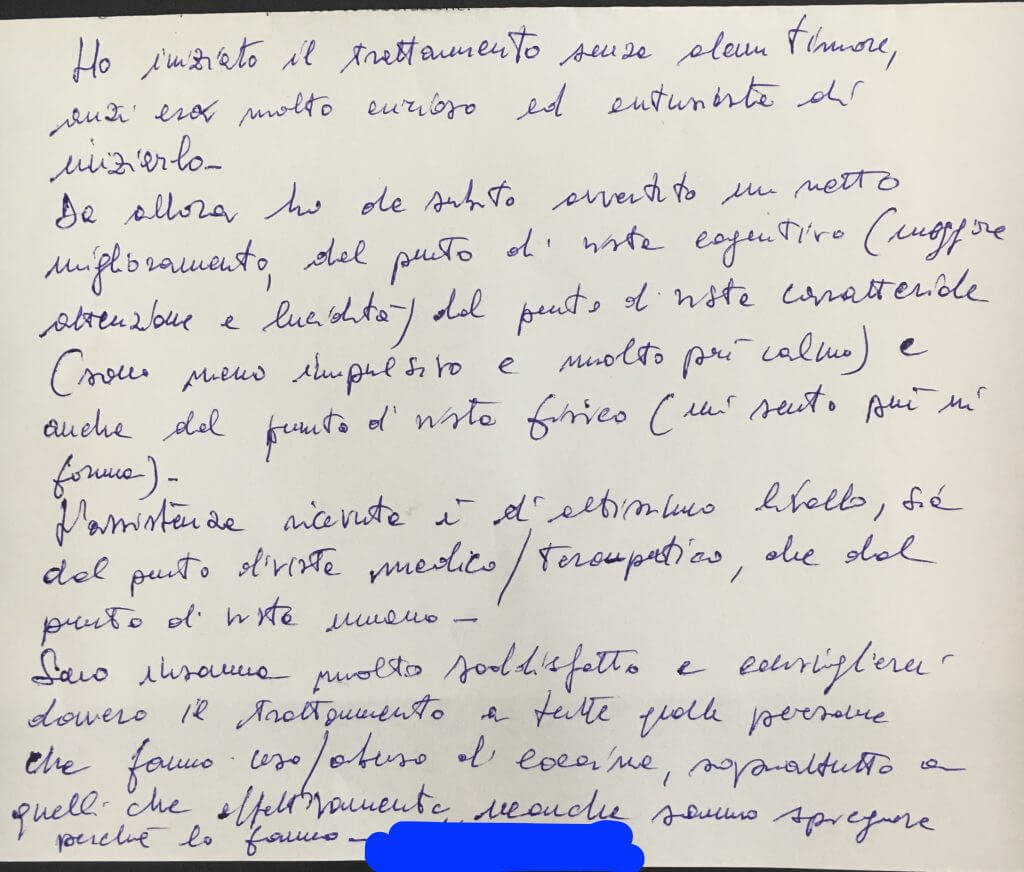 Ho iniziato il trattamento senza alcun timore,
anzi ero molto curioso ed entusiasta di
iniziarlo_
Da allora ho da subito avvertito un netto
miglioramento, dal punto di vista cognitivo (maggiore
attenzione e lucidità) dal punto di vista caratteriale
(sono meno impulsivo e molto più calmo) e
anche dal punto di vista fisico (mi sento più in
forma)._
L'assistenza ricevuta è di altissimo livello, sia
dal punto di vista medico/terapeutico, che dal
punto di vista umano_
Sono insomma molto soddisfatto e consiglierei
davvero il trattamento a tutte quelle persone
che fanno uso/abuso di cocaina, soprattutto a
quelli che effettivamente neanche sanno spiegare
perché lo fanno_